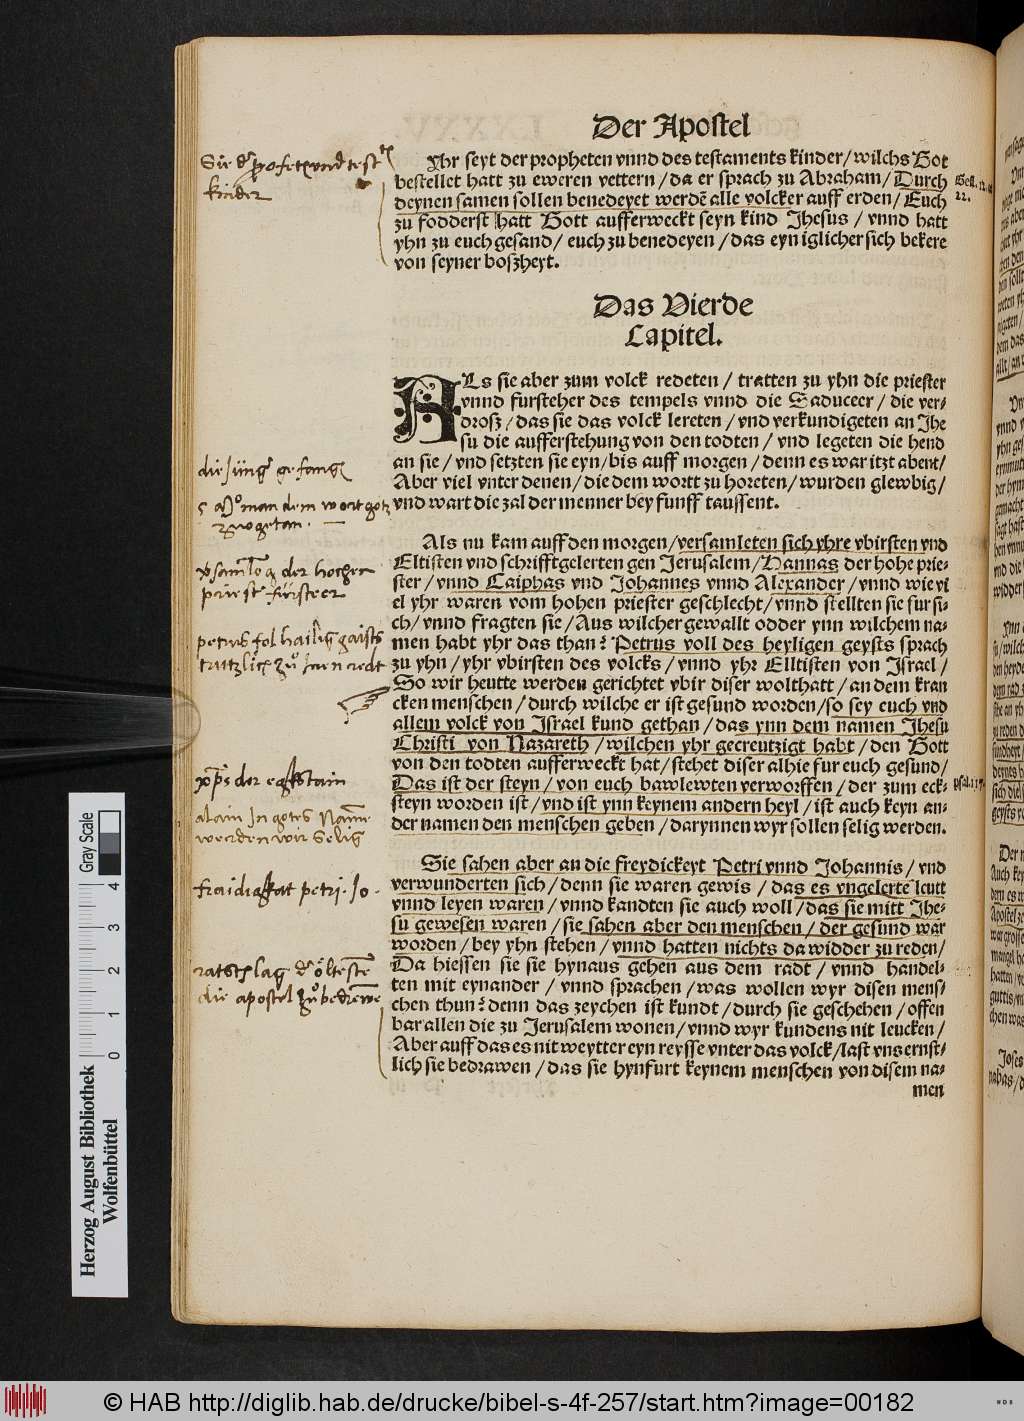 Der Apostel
Yhr seyt der propheten vnnd des testaments kinder/ wilchs Got
bestellet hatt zu eweren vettern/ da er sprach zu Abraham/ Durch
deynen samen sollen benedeyet werdē alle volcker auff erden/ Euch
zu fodderst hatt Gott aufferweckt seyn kind Jhesus/ vnnd hatt
yhn zu euch gesand/ euch zu benedeyen/ das eyn iglicher sich bekere
von seyner boszheyt.
Gen. 12.
22.
kinder
Das Vierde
Capitel.
ALs sie aber zum volck redeten/ tratten zu yhn die priester
vnnd fursteher des tempels vnnd die Saduceer/ die ver-
drosz/ das sie das volck lereten/ vnd verkundigeten an Jhe
su die aufferstehung von den todten/ vnd legeten die hend
an sie/ vnd setzten sie eyn/ bis auff morgen/ denn es war itzt abent/
Aber viel vnter denen/ die dem wortt zu horeten/ wurden glewbig/
vnd wart die zal der menner bey funff taussent.
man dem wort gotz
Als nu kam auff den morgen/ versamleten sich yhre vbirsten vnd
Eltisten vnd schrifftgelerten gen Jerusalem/ Hannas der hohe prie-
ster/ vnnd Caiphas vnd Johannes vnnd Alexander/ vnnd wie vi
el yhr waren vom hohen priester geschlecht/ vnnd stellten sie fur si-
ch/ vnnd fragten sie/ Aus wilcher gewallt odder ynn wilchem na-
men habt yhr das than? Petrus voll des heyligen geysts sprach
zu yhn/ yhr vbirsten des volcks/ vnnd yhr Elltisten von Israel/
So wir heutte werden gerichtet vbir diser wolthatt/ an dem kran
cken menschen/ durch wilche er ist gesund worden/ so sey euch vnd
allem volck von Israel kund gethan/ das ynn dem namen Jhesu
Christi von Nazareth/ wilchen yhr gecreutzigt habt/ den Gott
von den todten aufferweckt hat/ stehet diser alhie fur euch gesund/
Das ist der steyn/ von euch bawlewten verworffen/ der zum eck-
steyn worden ist/ vnd ist ynn keynem andern heyl/ ist auch keyn an-
der namen den menschen geben/ darynnen wyr sollen selig werden.
psal. 117.
der hochen
priester fürsteer
der egkstain
alain In gotes Name
werden wir selig
Sie sahen aber an die freydickeyt Petri vnnd Johannis/ vnd
verwunderten sich/ denn sie waren gewis/ das es vngelerte leutt
vnnd leyen waren/ vnnd kandten sie auch woll/ das sie mitt Jhe-
su gewesen waren/ sie sahen aber den menschen/ der gesund war
worden/ bey yhn stehen/ vnnd hatten nichts da widder zu reden/
Da hiessen sie sie hynaus gehen aus dem radt/ vnnd handel-
ten mit eynander/ vnnd sprachen/ was wollen wyr disen mens-
chen thun? denn das zeychen ist kundt/ durch sie geschehen/ offen
bar allen die zu Jerusalem wonen/ vnnd wyr kundens nit leucken/
Aber auff das es nit weytter eyn reysse vnter das volck/ last vns ernst-
lich sie bedrawen/ das sie hynfurt keynem menschen von disem na-
men
petri. Jo.
ratschlag
die apostel
Herzog August Bibliothek
Wolfenbüttel
Gray Scale
0 1 2 3 4
© HAB http://diglib.hab.de/drucke/bibel-s-4f-257/start.htm?image=00182